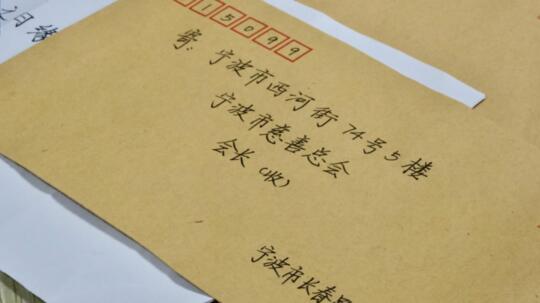 15099
寄：宁波市西河街74号5楼
宁波市慈善总会
会长（收）
宁波市长春